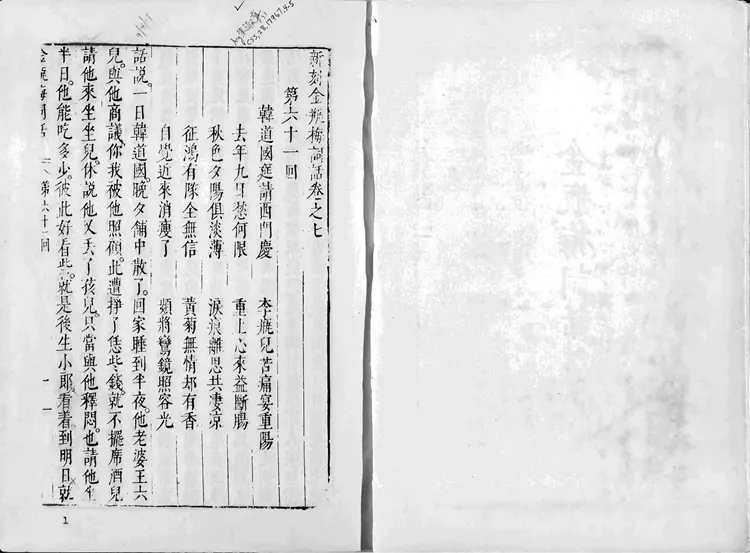 新刻金瓶梅詞話卷之七
第六十一回
韓道國筵請西門慶 李瓶兒苦痛宴重陽
去年九日愁何限 重上心來益斷腸
秋色夕陽俱淡薄 淚痕離思共凄凉
征鴻有隊全無信 黃菊無情却有香
自覺近來消瘦了 頻將鸞鏡照容光
話說一日韓道國晚夕舖中散了回家睡到半夜他老婆王六
兒與他商議你我被他照顧此遭掙了恁些錢就不擺席酒兒
請他來坐坐兒休說他又丟了孩兒只當與他釋悶也請他坐
半日他能吃多少彼此好看些就是後生小郎看着到明日就
金瓶梅詞話 第六十一回 一
1